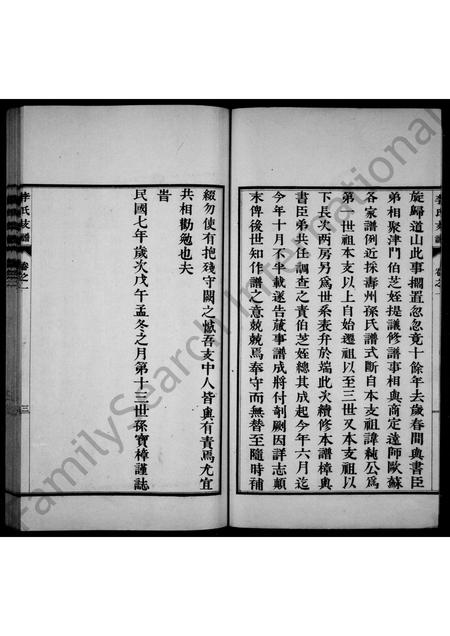 旋歸道山此事擱置忽忽竟十餘年去歲春間與書臣
弟相聚津門伯芝姪提議修譜事相與商定遠師歐蘇
各家譜例近採壽州孫氏譜式斷自本支祖諱純公爲
第一世祖本支以上自始遷祖以至三世又本支祖以
下長次兩房另爲世系表弁於端此次續修本譜樟與
書臣弟共任調查之責伯芝姪總其成起今年六月迄
今年十月不半載遂告蕆事譜成將付剞劂因詳志顛
末俾後世知作譜之意兢兢焉奉守而無替至隨時補
綴勿使有抱殘守闕之憾吾支中人皆與有責焉尤宜
共相勸勉也夫
旹
民國七年歲次戊午孟冬之月第十三世孫寶樟謹誌
李氏支譜 卷之一
李氏支譜 卷之一 三
FamilySearch International